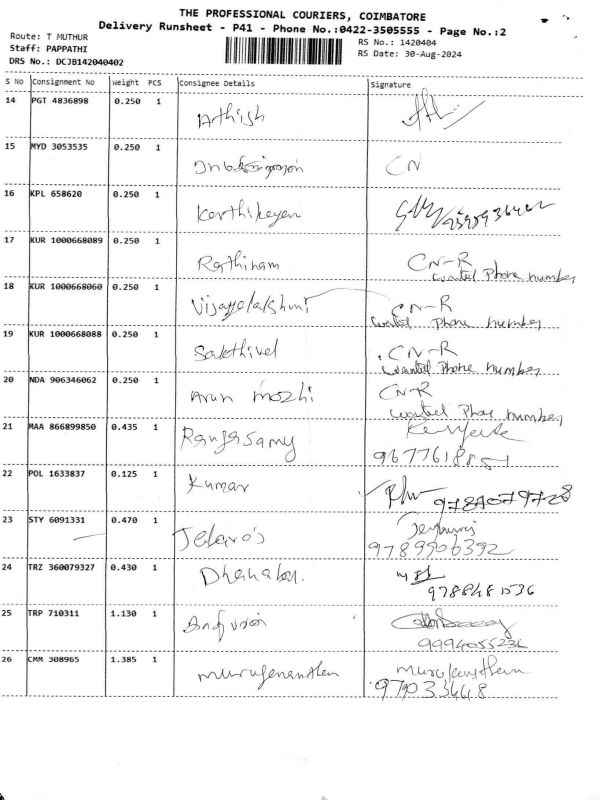 THE PROFESSIONAL COURIERS, COIMBATORE
Delivery Runsheet - P41 - Phone No.:0422-3505555 - Page No.:2
Route: T MUTHUR
Staff: PAPPATHI
DRS No.: DCJB142040402
RS No.: 1420404
RS Date: 30-Aug-2024
S No Consignment No Weight PCS Consignee Details Signature
14 PGT 4836898 0.250 1 Athish
15 MYD 3053535 0.250 1 CN
16 KPL 658620 0.250 1 Karthikeyan
17 KUR 1000668089 0.250 1 Rathinam CN-R
wanted Phone number
18 KUR 1000668060 0.250 1 Vijayalakshmi CN-R
wanted Phone number
19 KUR 1000668088 0.250 1 Sakthivel CN-R
wanted Phone number
20 NDA 906346062 0.250 1 Arun mozhi CN-R
wanted Phone number
21 MAA 866899850 0.435 1 Rangasamy
22 POL 1633837 0.125 1 Kumar
23 STY 6091331 0.470 1
9789906392
24 TRZ 360079327 0.430 1
9788481536
25 TRP 710311 1.130 1
9994055236
26 CMM 308965 1.385 1 murugananthan